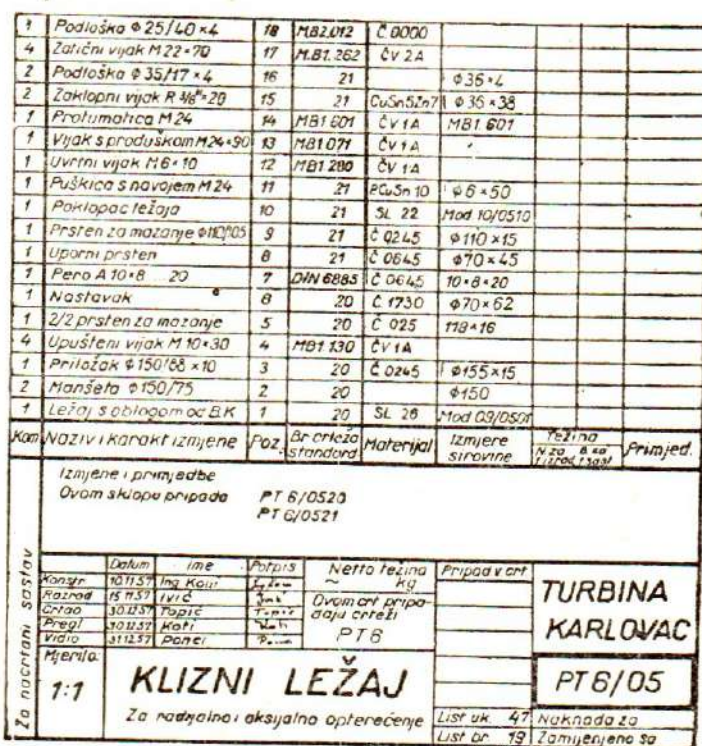 1 Podloška ⌀25/40×4 18 M.B2.012 Č 0000
4 Zatični vijak M22×70 17 M.B1.262 ČV 2A
2 Podloška ⌀35/17×4 16 21 ⌀36×4
2 Zaklopni vijak R 3/8"×20 15 21 CuSn5Zn7 ⌀36×38
1 Protumatica M24 14 MB1.601 ČV 1A MB1.601
1 Vijak s produškom M24×90 13 MB1.071 ČV 1A
1 Uvrtni vijak M6×10 12 MB1 280 ČV 1A
1 Puškica s navojem M24 11 21 PCuSn10 ⌀6×50
1 Poklopac ležaja 10 21 SL 22 Mod 10/0510
1 Prsten za mazanje ⌀110/105 9 21 Č 0245 ⌀110×15
1 Uporni prsten 8 21 Č 0645 ⌀70×45
1 Pero A 10×8 20 7 DIN 6885 Č 0645 10×8×20
1 Nastavak 6 20 Č 1730 ⌀70×62
1 2/2 prsten za mazanje 5 20 Č 025 118×16
4 Upušteni vijak M10×30 4 MB1.130 ČV 1A
1 Priložak ⌀150/88×10 3 20 Č 0245 ⌀155×15
2 Manšeta ⌀150/75 2 20 ⌀150
1 Ležaj s oblogom od B.K 1 20 SL 26 Mod 09/0501
Kom Naziv i karakt izmjene Poz. Br crteža standard Materijal Izmjere sirovine Težina Primjed.
Izmjene i primjedbe
Ovom sklopu pripada PT 6/0520
PT 6/0521
Za nacrtani sastav
Datum ime Potpis Netto težina ~ kg Pripad v crt
Konstr 10.11.57 Ing
Razrad 15.11.57 Ivić
Crtao 30.12.57 Topić
Pregl 30.12.57 Kati
Vidio 31.12.57
Ovom crt pripadaju crteži
PT6
TURBINA
KARLOVAC
Mjerilo:
1:1
KLIZNI LEŽAJ
Za radijalno i aksijalno opterećenje
PT 6/05
List uk. 47 Naknada za
List br 19 Zamijenjeno sa